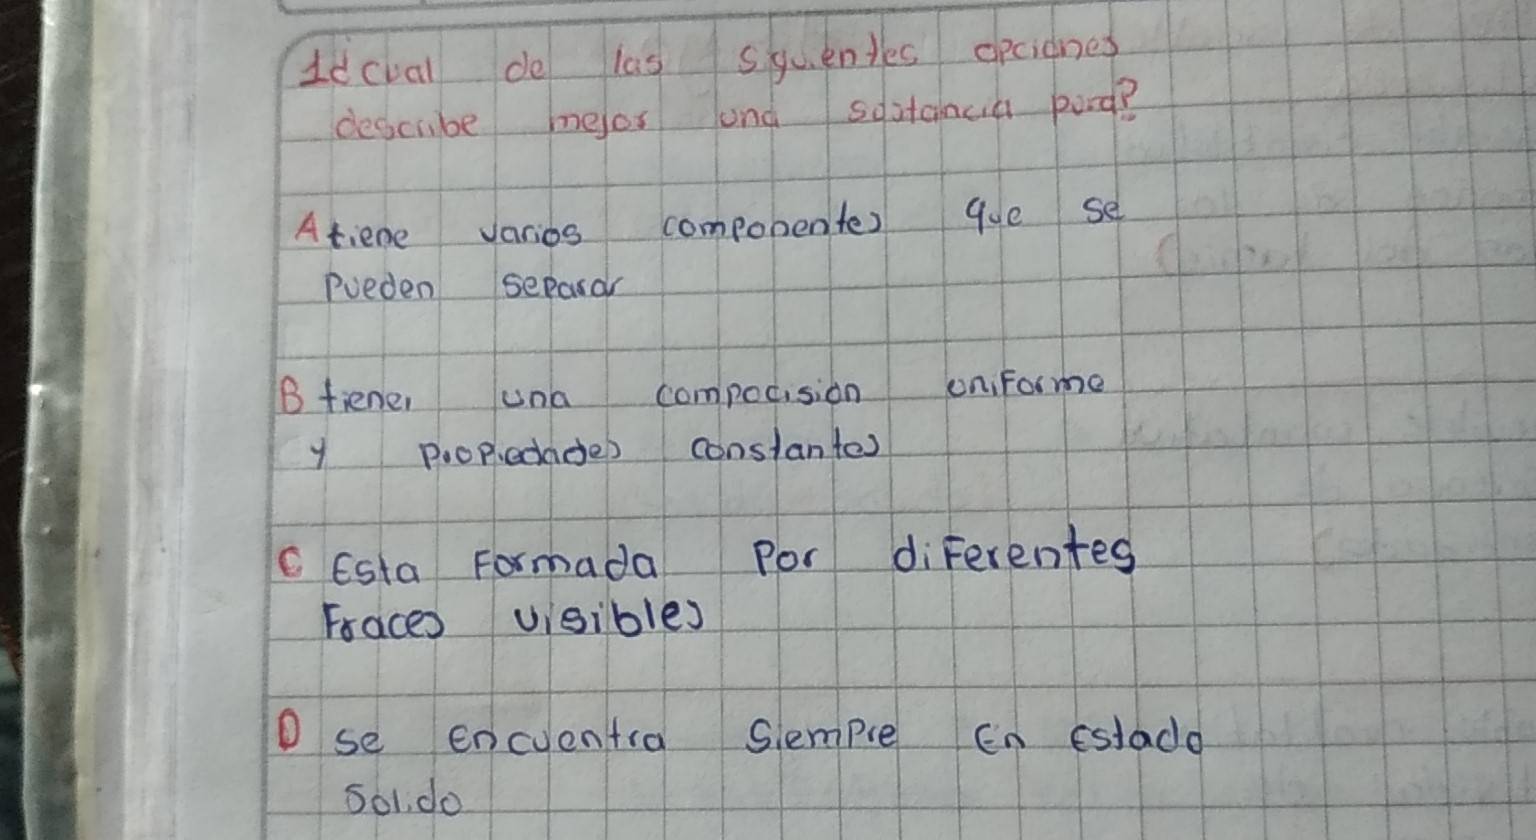 1¿cual de las siguientes opciones
describe mejor una sustancia pura?
A tiene varios componentes que se
Pueden separar
B tiene una compocision uniforme
y propiedades constantes
C Esta Formada Por diferentes
Fraces visibles
D se encuentra siempre En Estado
Solido